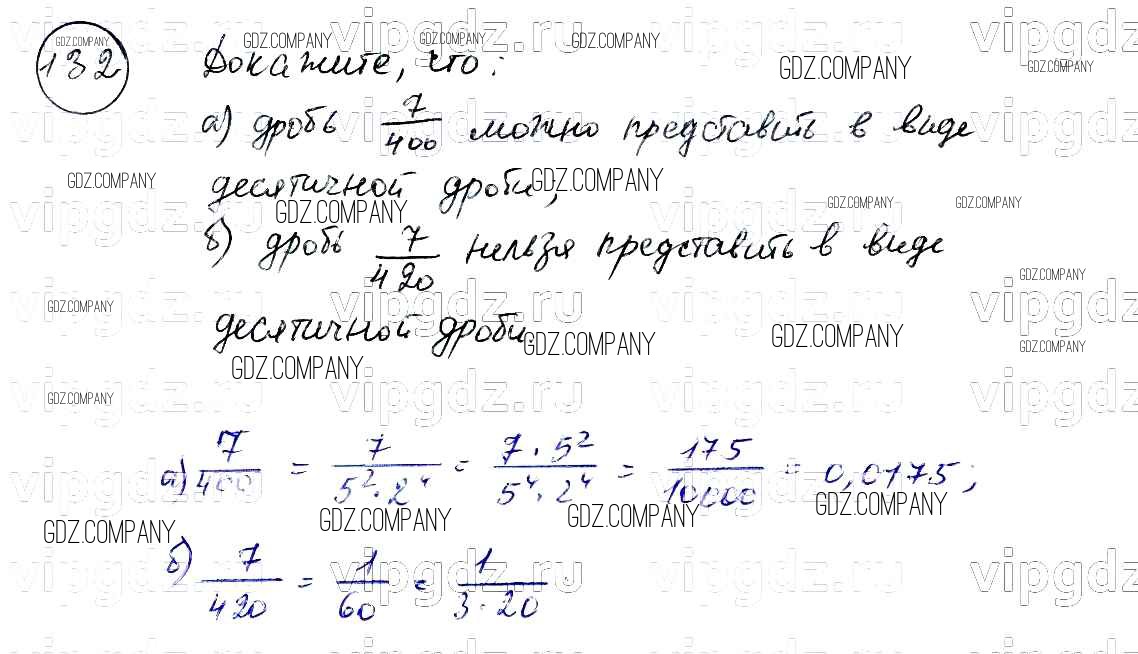 132 Докажите, что:
а) дробь 7/400 можно представить в виде
десятичной дроби;
б) дробь 7/420 нельзя представить в виде
десятичной дроби.
а) 7/400 = 7/(5²·2⁴) = (7·5²)/(5⁴·2⁴) = 175/10000 = 0,0175;
б) 7/420 = 1/60 = 1/(3·20)
GDZ.COMPANY
vipgdz.ru